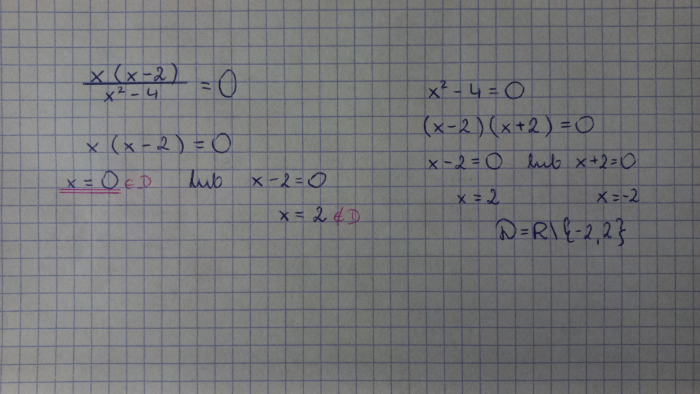 x(x-2)
x²-4
= 0
x(x-2)=0
x=0 ∈D lub x-2=0
x=2 ∉D
x²-4=0
(x-2)(x+2)=0
x-2=0 lub x+2=0
x=2 x=-2
D=R\{-2,2}